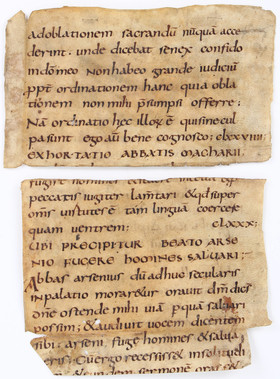 adoblationem sacrandū nūquā acce
derint. unde dicebat senex confido
indōmeo Nonhabeo grande iudiciū
ppt ordinationem hanc quia obla
tionem non mihi p̄sumpsi offerre;
Nā ordinatio hec illox̄ ē quisinecul
pasunt egoaū bene cognosco; clxxxiiii
EXHORTATIO ABBATIS MACHARII.
fugire homines
peccatis iugiter lam̄tari & qd̄super
om̄s uirtutes ē tam linguā coercere
quam uentrem: clxxx:
UBI PRECIPITUR BEATO ARSE
NIO FUGERE HOMINES SALUARI;
Abbas arsenius dū adhuc secularis
inpalatio morar&ur orauit dn̄m dicēs
dn̄e ostende mihi uiā p quā saluari
possim; & audiuit uocem dicentem
sibi; arseni fuge homines & salua
eris; Quiergo recessiss& insolitudi